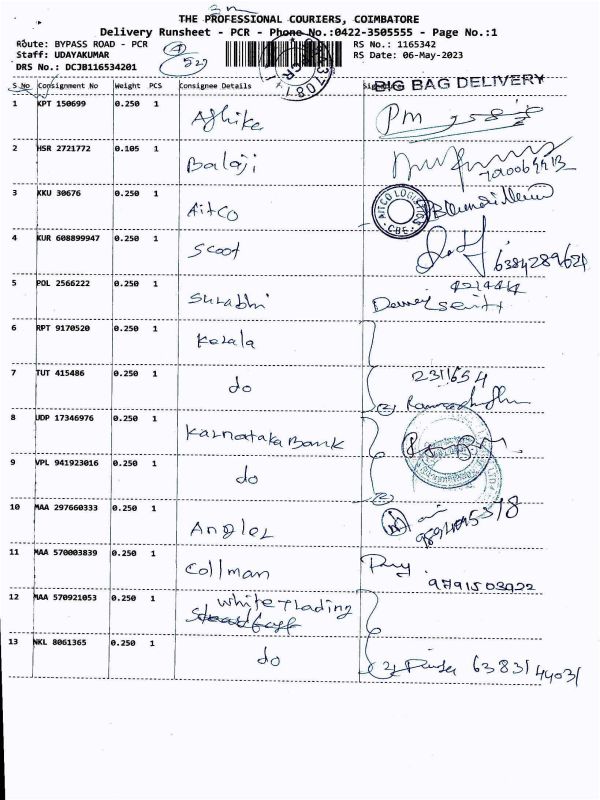 THE PROFESSIONAL COURIERS, COIMBATORE
Delivery Runsheet - PCR - Phone No.:0422-3505555 - Page No.:1
Route: BYPASS ROAD - PCR RS No.: 1165342
Staff: UDAYAKUMAR RS Date: 06-May-2023
DRS No.: DCJB116534201
BIG BAG DELIVERY
S No Consignment No Weight PCS Consignee Details
1 KPT 150699 0.250 1
2 HSR 2721772 0.105 1 Balaji
3 KKU 30676 0.250 1 Aitco AITCO LOGISTICS CBE
4 KUR 608899947 0.250 1 Scoot 6384289621
5 POL 2566222 0.250 1 Surabhi
6 RPT 9170520 0.250 1 Kerala
7 TUT 415486 0.250 1 do 2311654
8 UDP 17346976 0.250 1 Karnataka Bank
9 VPL 941923016 0.250 1 do
10 MAA 297660333 0.250 1 Angler
11 MAA 570003839 0.250 1 Collman 9791503922
12 MAA 570921053 0.250 1 White Trading
13 NKL 8061365 0.250 1 do